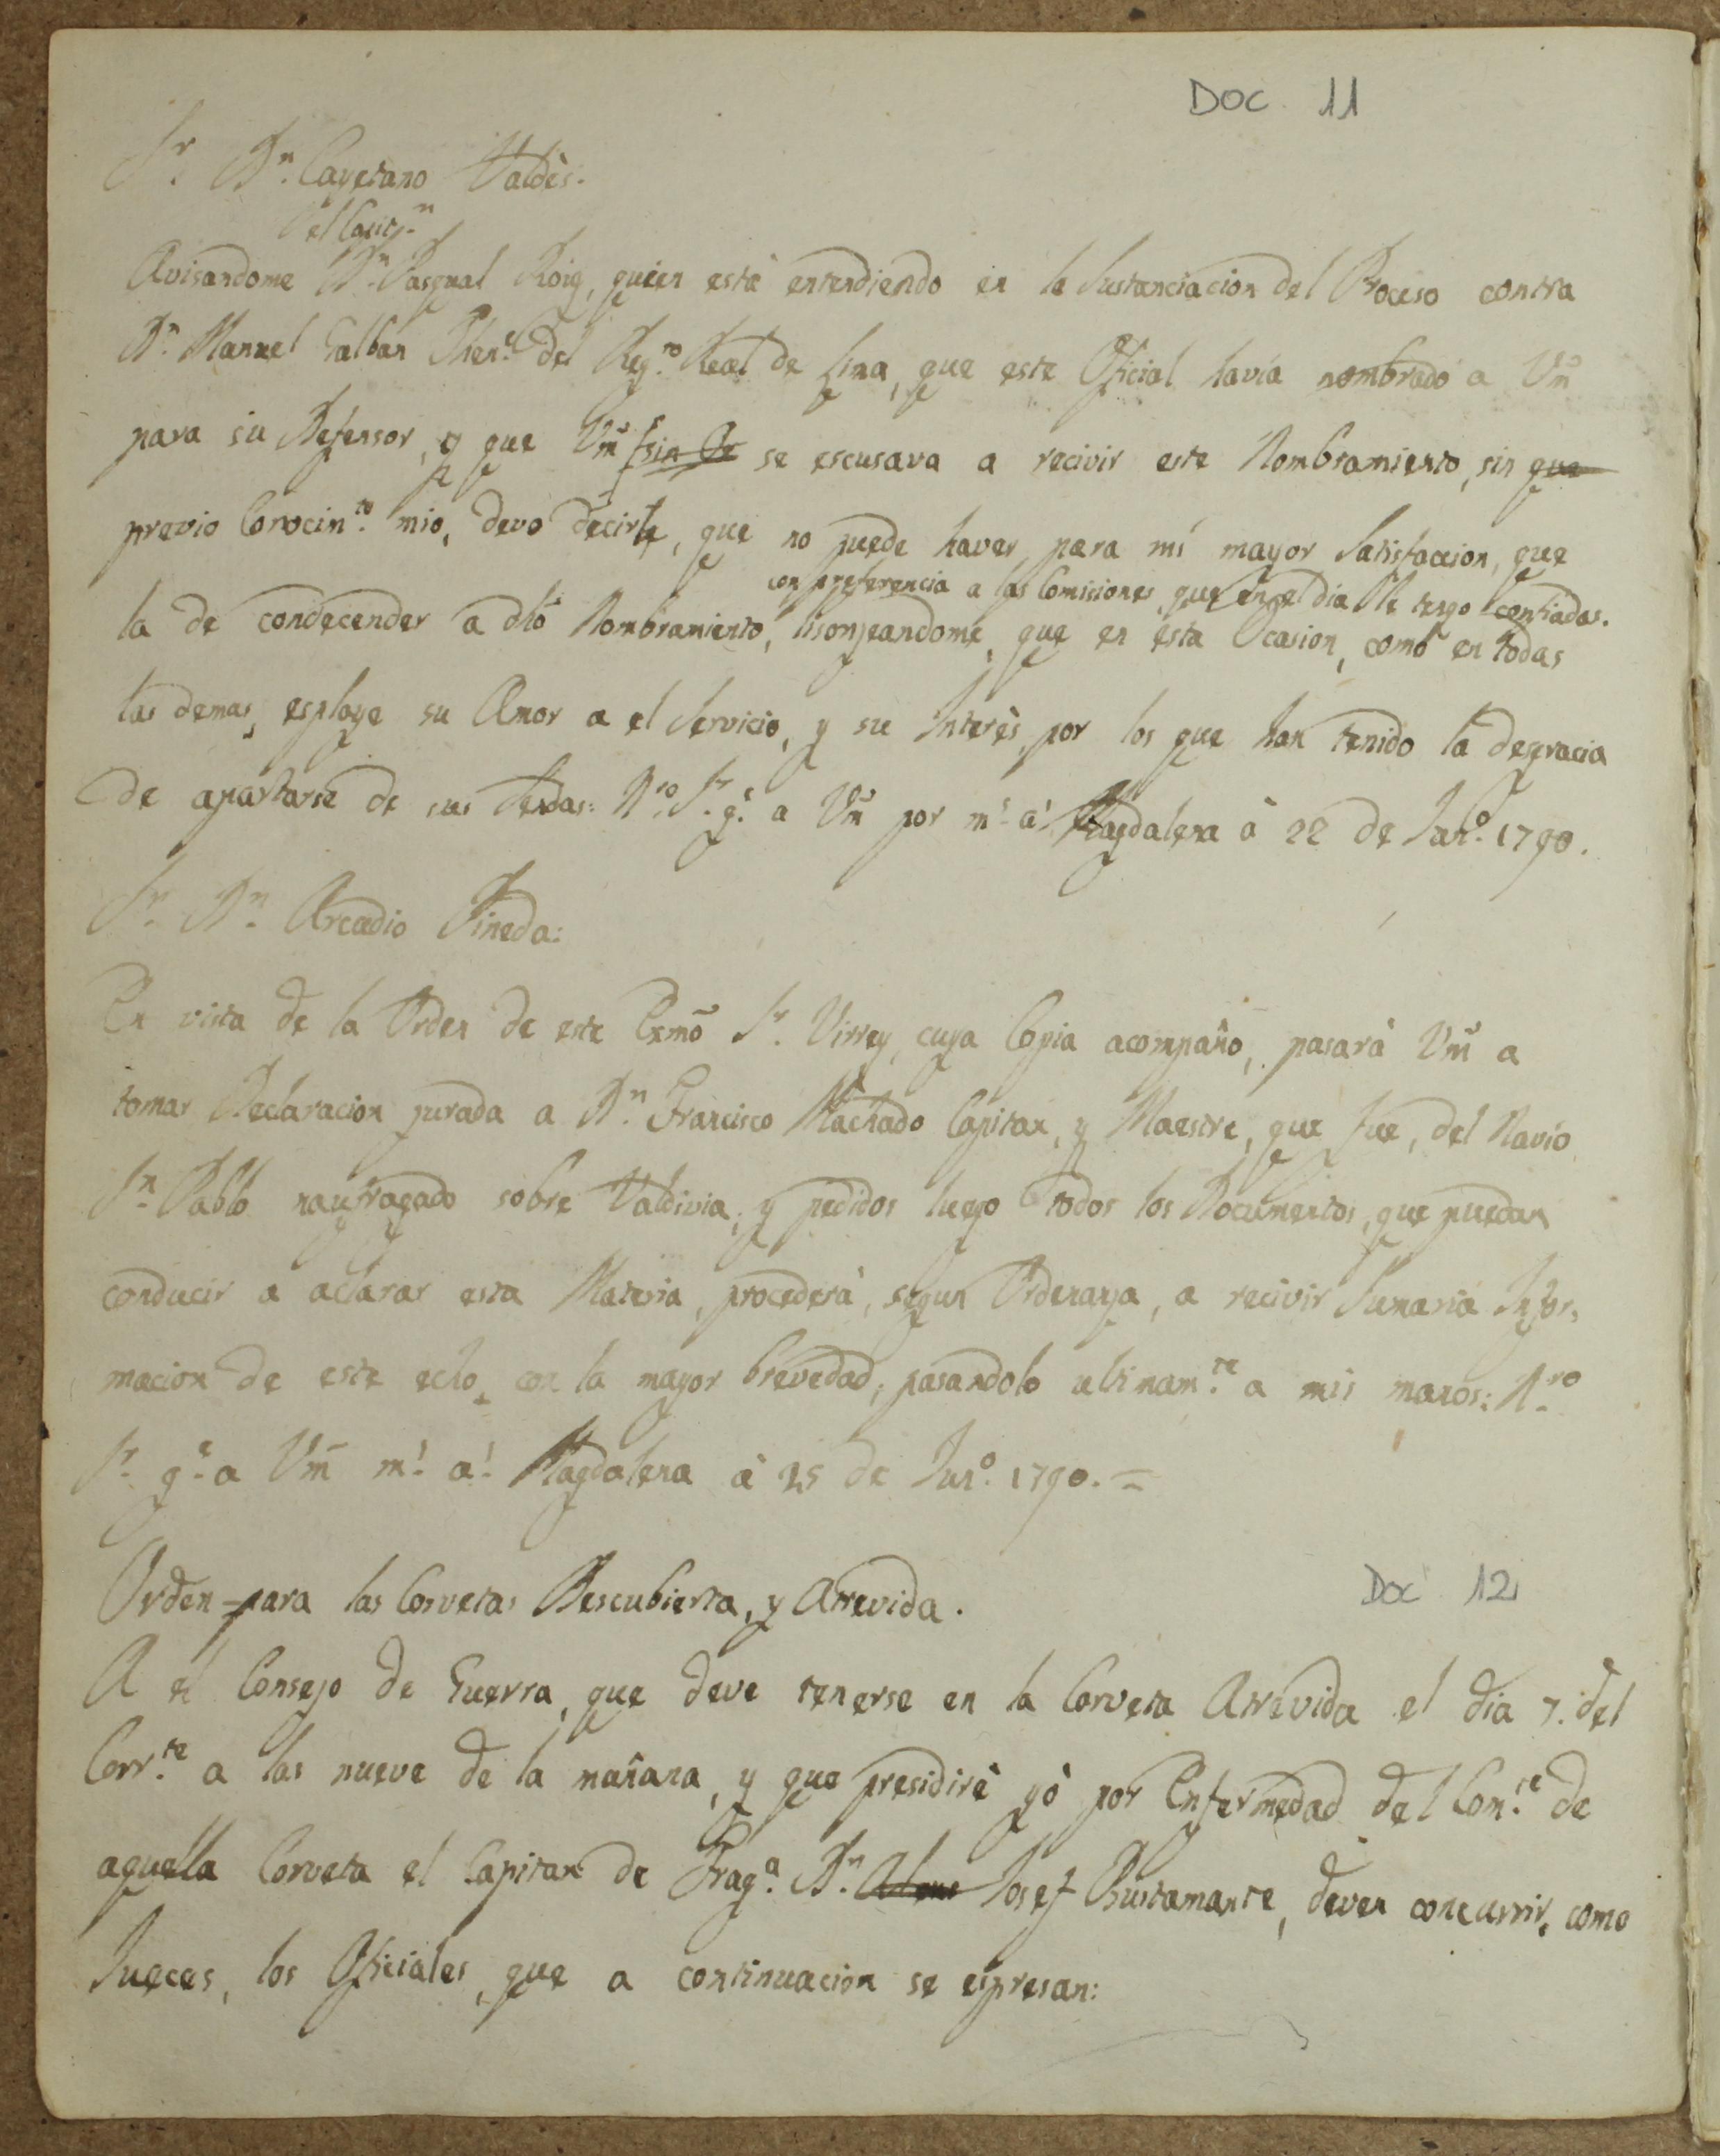 DOC 11
Sr. Dn. Cayetano Valdès.
el Capitn.
Avisandome Dn. Pasqual Roig, quien està entendiendo en la Sustanciacion del Proceso contra
Dn. Manuel Galban Thene. del Regto. Real de Lima, que este Oficial havia nombrado a Vm
para su Defensor, y que Vm sin Or se escusava a recivir este Nombramiento, sin que
previo Conocimto. mio, devo decirle, que no puede haver para mi mayor Satisfaccion, que
con preferencia a las Comisiones, que en el dia le tengo confiadas.
la de condecender a dho Nombramiento, lisonjeandome, que en esta Ocasion, como en todas
las demas, esplaye su Amor a el Servicio, y su Interès por los que han tenido la degracia
de apartarse de sus Sendas: Nro. Sr. ge. a Vm por ms. as. Magdalena à 22 de Juno. 1790.
Sr. Dn. Arcadio Pineda:
En vista de la Orden de este Exmo Sr. Virrey, cuya Copia acompaño, pasarà Vm a
tomar Declaracion jurada a Dn. Francisco Machado Capitan, y Maestre, que fue, del Navio
Sn. Pablo naufragado sobre Valdivia; y pedidos luego todos los Documentos, que puedan
conducir a aclarar esta Materia, procederà, segun Ordenanza, a recivir Sumaria Infor-
macion de este echo, con la mayor brevedad, pasandolo ultimamte. a mis manos: Nro.
Sr. ge. a Vm ms. as. Magdalena à 25 de Juno. 1790. =
Orden para las Corvetas Descubierta, y Atrevida.
Doc 12
A el Consejo de Guerra, que deve tenerse en la Corveta Atrevida el dia 7. del
Corrte. a las nueve de la mañana, y que presidirè yò por Enfermedad del Comte. de
aquella Corveta el Capitan de Fraga. Dn. Josef Bustamante, deven concurrir, como
Jueces, los Oficiales, que a continuacion se espresan: